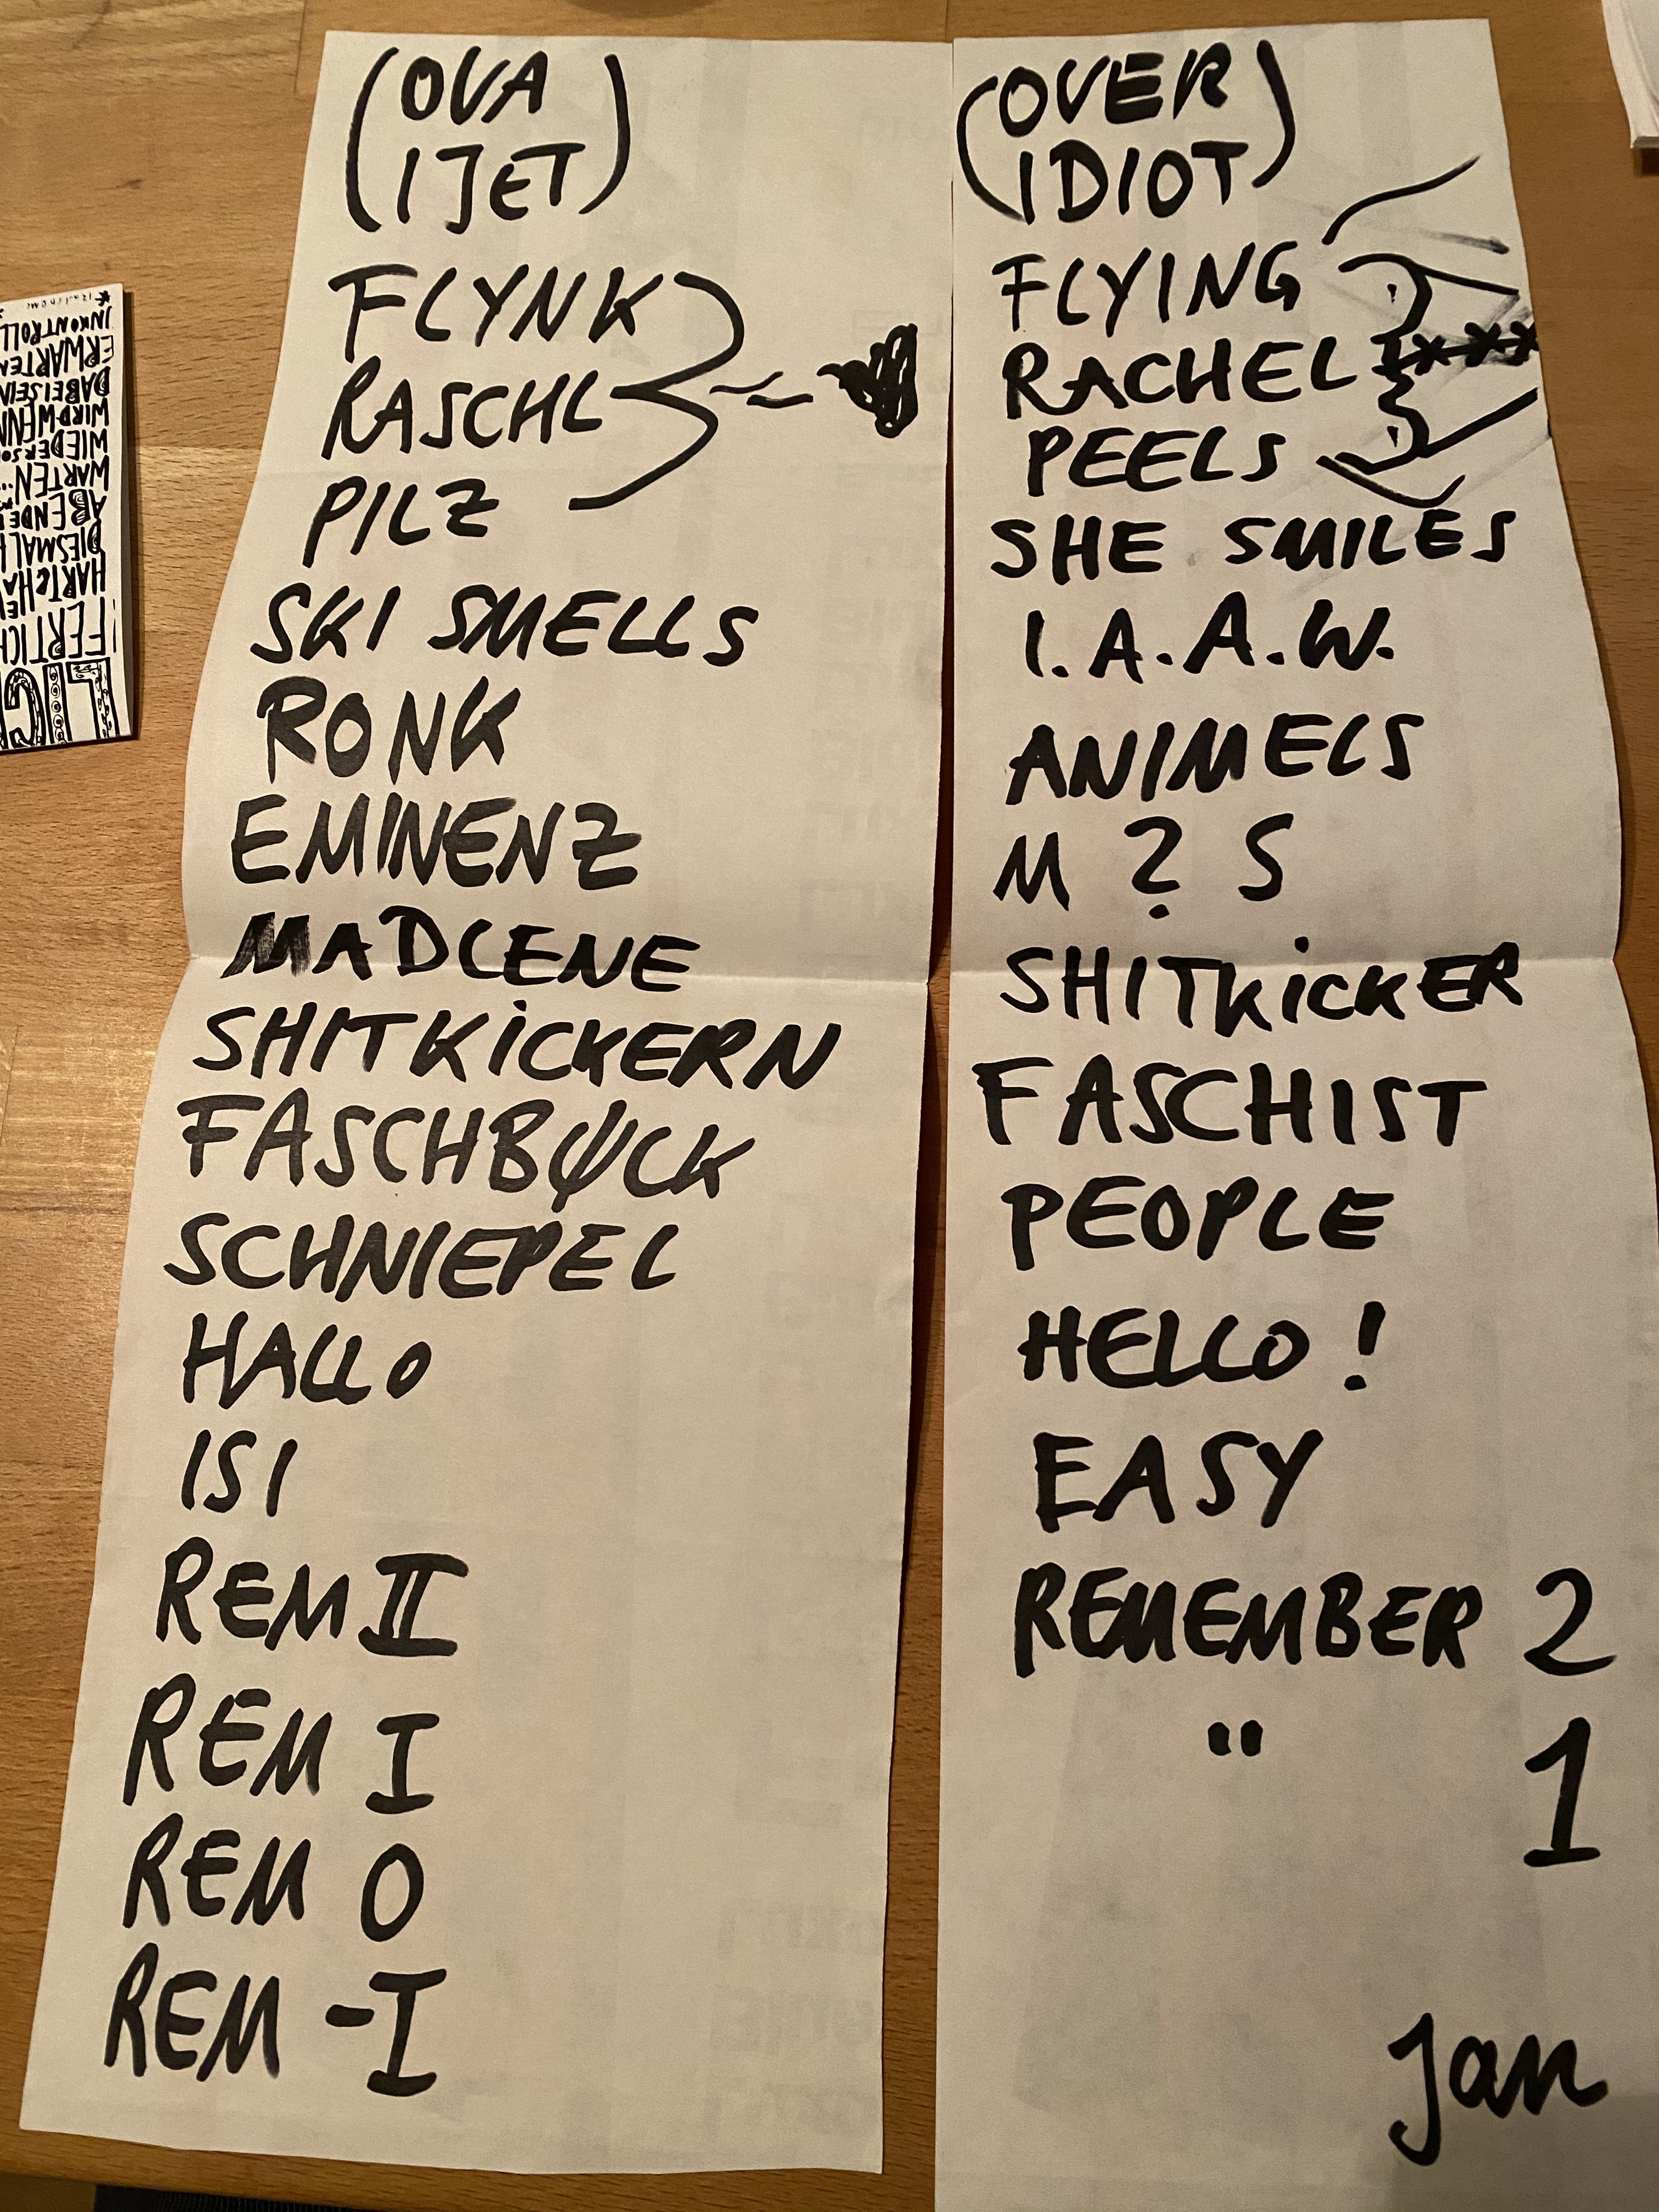 (OVA
IJET)
FLYNK
RASCHL
PILZ
SKI SMELLS
RONK
EMINENZ
MADLENE
SHITKICKERN
FASCHBUCK
SCHNIEPEL
HALLO
ISI
REM II
REM I
REM 0
REM -I
(OVER
IDIOT)
FLYING
RACHEL
PEELS
SHE SMILES
I.A.A.W.
ANIMELS
M ? S
SHITKICKER
FASCHIST
PEOPLE
HELLO!
EASY
REMEMBER 2
" 1
Jan
INKONTROLL
ERWARTEN
DABEISEIN
WIRDWENN
WIEDERSO
WARTEN...
ABENDE
DIESMAL
HART&HA
FERTIG